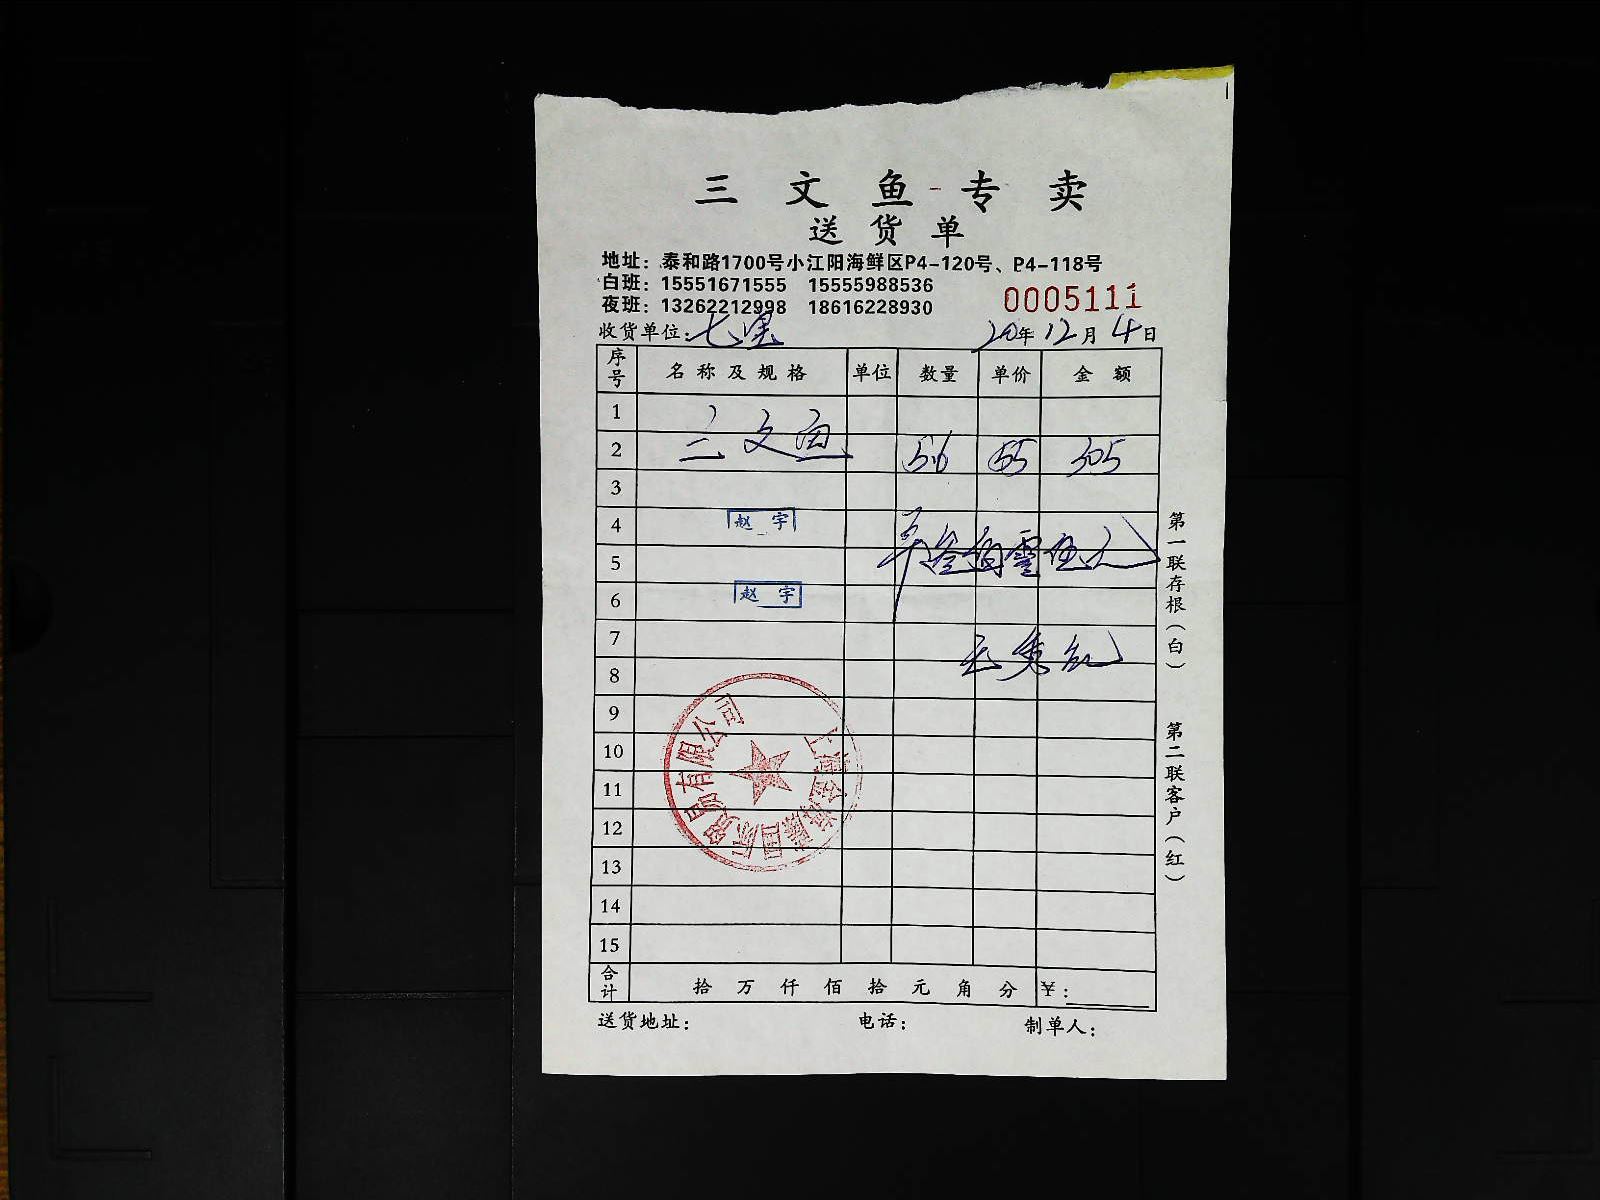 三文鱼专卖
送货单
地址：泰和路1700号小江阳海鲜区P4-120号、P4-118号
白班：15551671555 15555988536
夜班：13262212998 18616228930
0005111
收货单位：七 20年12月4日
序号 名称及规格 单位 数量 单价 金额
1
2 三文鱼 5.6 55 305
3
4 赵宇
5 叁佰零伍元
6 赵宇
7
8
9
10
11
12
13
14
15
合计 拾万仟佰拾元角分 ￥：
送货地址： 电话： 制单人：
第一联存根（白）
第二联客户（红）
国际贸易有限公司